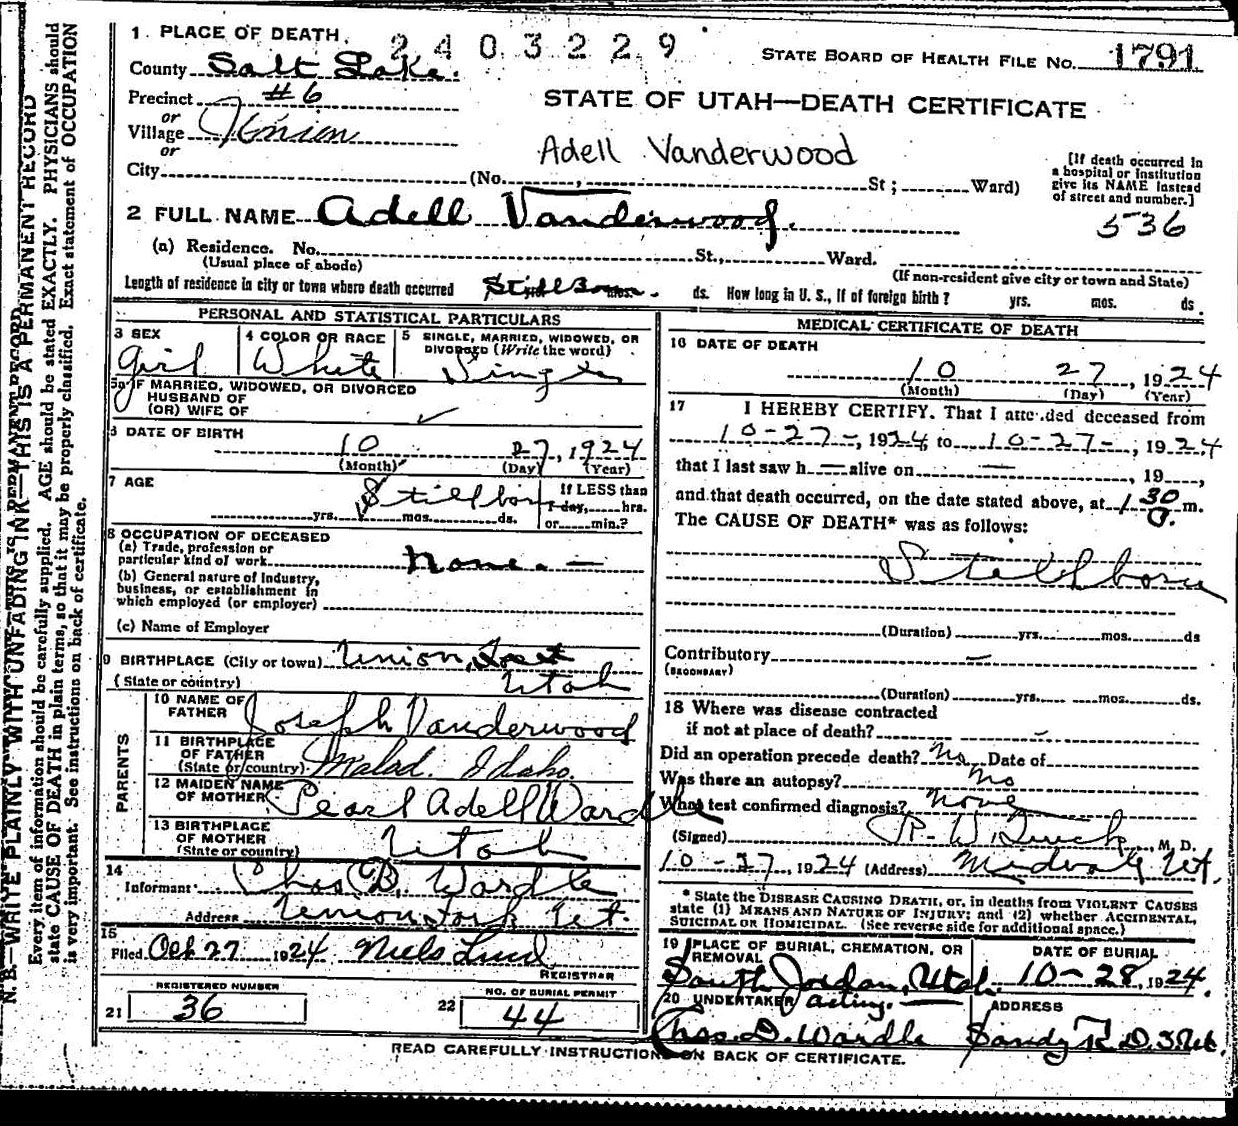 1 PLACE OF DEATH. 2403229 STATE BOARD OF HEALTH FILE No. 1791
County Salt Lake.
Precinct #6
or
Village Union
or
STATE OF UTAH—DEATH CERTIFICATE
Adell Vanderwood
City (No. , St ; Ward)
[If death occurred in
a hospital or institution
give its NAME instead
of street and number.]
2 FULL NAME Adell Vanderwood.
536
(a) Residence. No. St., Ward.
(Usual place of abode) (If non-resident give city or town and State)
Length of residence in city or town where death occurred Stillborn. yrs. mos. ds. How long in U. S., if of foreign birth? yrs. mos. ds.
PERSONAL AND STATISTICAL PARTICULARS
3 SEX 4 COLOR OR RACE 5 SINGLE, MARRIED, WIDOWED, OR
DIVORCED (Write the word)
Girl White Single
5a IF MARRIED, WIDOWED, OR DIVORCED
HUSBAND OF
(OR) WIFE OF
6 DATE OF BIRTH
10 27, 1924
(Month) (Day) (Year)
7 AGE Stillborn If LESS than
1 day, hrs.
yrs. mos. ds. or min.?
8 OCCUPATION OF DECEASED
(a) Trade, profession or
particular kind of work none. —
(b) General nature of Industry,
business, or establishment in
which employed (or employer)
(c) Name of Employer
9 BIRTHPLACE (City or town) Union,
(State or country) Utah
PARENTS
10 NAME OF
FATHER Joseph Vanderwood
11 BIRTHPLACE
OF FATHER
(State or country) Malad. Idaho.
12 MAIDEN NAME
OF MOTHER Pearl Adell Wardle
13 BIRTHPLACE
OF MOTHER
(State or country) Utah
14
Informant Chas D. Wardle
Address Union Fork Ut.
15
Filed Oct 27 1924 Niels Lind
REGISTRAR
REGISTERED NUMBER NO. OF BURIAL PERMIT
21 36 22 44
MEDICAL CERTIFICATE OF DEATH
16 DATE OF DEATH
10 27, 1924
(Month) (Day) (Year)
17 I HEREBY CERTIFY. That I attended deceased from
10-27-, 1924, to 10-27-, 1924
that I last saw h — alive on — , 19 ,
and that death occurred, on the date stated above, at 1 30 a. m.
The CAUSE OF DEATH* was as follows:
Stillborn
(Duration) yrs. mos. ds
Contributory —
(SECONDARY)
(Duration) yrs. mos. ds.
18 Where was disease contracted
if not at place of death? -
Did an operation precede death? No Date of
Was there an autopsy? No
What test confirmed diagnosis? None
(Signed) , M. D.
10-27, 1924 (Address) Midvale Ut.
* State the DISEASE CAUSING DEATH, or, in deaths from VIOLENT CAUSES
state (1) MEANS AND NATURE OF INJURY; and (2) whether ACCIDENTAL,
SUICIDAL OR HOMICIDAL. (See reverse side for additional space.)
19 PLACE OF BURIAL, CREMATION, OR
REMOVAL DATE OF BURIAL
South Jordan, Utah. 10-28, 1924.
20 UNDERTAKER acting. — ADDRESS
Chas. D. Wardle Sandy R. D. 3 Ut.
READ CAREFULLY INSTRUCTIONS ON BACK OF CERTIFICATE.
N. B.—WRITE PLAINLY WITH UNFADING INK—THIS IS A PERMANENT RECORD
Every item of information should be carefully supplied. AGE should be stated EXACTLY. PHYSICIANS should
state CAUSE OF DEATH in plain terms, so that it may be properly classified. Exact statement of OCCUPATION
is very important. See instructions on back of certificate.